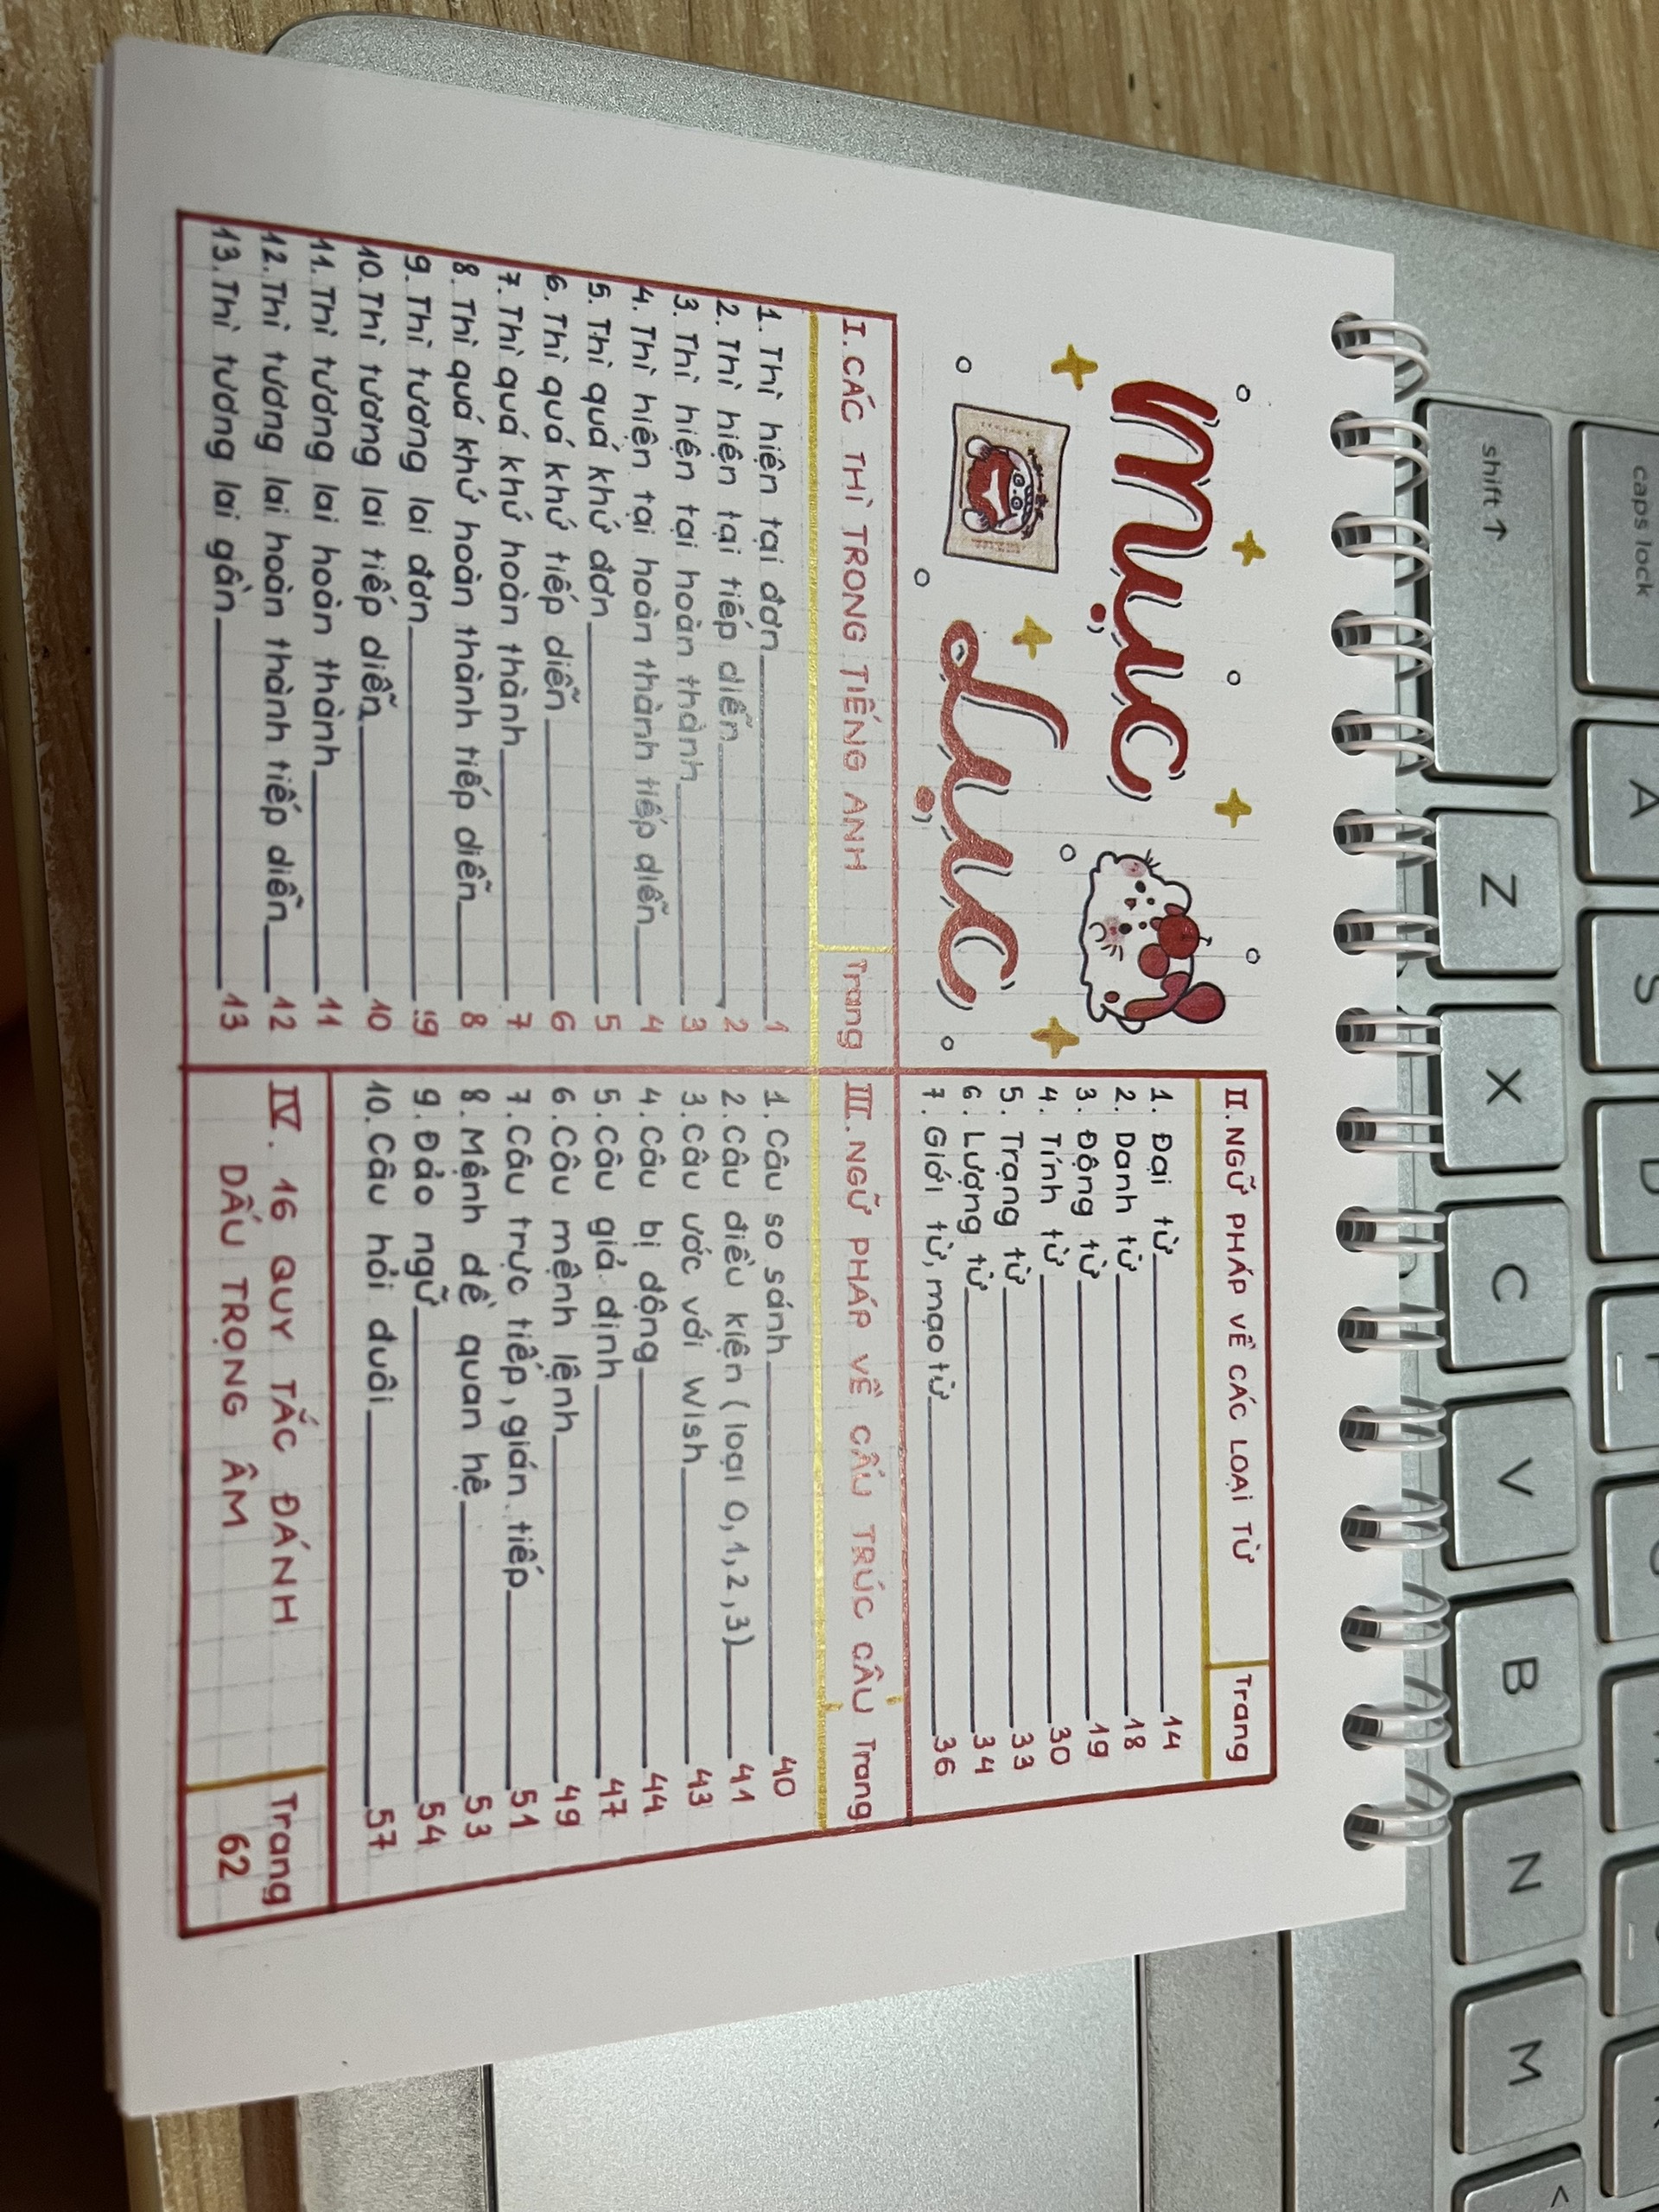 Mục
Lục
I. CÁC THÌ TRONG TIẾNG ANH Trang
1. Thì hiện tại đơn 1
2. Thì hiện tại tiếp diễn 2
3. Thì hiện tại hoàn thành 3
4. Thì hiện tại hoàn thành tiếp diễn 4
5. Thì quá khứ đơn 5
6. Thì quá khứ tiếp diễn 6
7. Thì quá khứ hoàn thành 7
8. Thì quá khứ hoàn thành tiếp diễn 8
9. Thì tương lai đơn 9
10. Thì tương lai tiếp diễn 10
11. Thì tương lai hoàn thành 11
12. Thì tương lai hoàn thành tiếp diễn 12
13. Thì tương lai gần 13
II. NGỮ PHÁP VỀ CÁC LOẠI TỪ Trang
1. Đại từ 14
2. Danh từ 18
3. Động từ 19
4. Tính từ 30
5. Trạng từ 33
6. Lượng từ 34
7. Giới từ, mạo từ 36
III. NGỮ PHÁP VỀ CẤU TRÚC CÂU Trang
1. Câu so sánh 40
2. Câu điều kiện (loại 0, 1, 2, 3) 41
3. Câu ước với Wish 43
4. Câu bị động 44
5. Câu giả định 47
6. Câu mệnh lệnh 49
7. Câu trực tiếp, gián tiếp 51
8. Mệnh đề quan hệ 53
9. Đảo ngữ 54
10. Câu hỏi đuôi 57
IV. 16 QUY TẮC ĐÁNH Trang
DẤU TRỌNG ÂM 62
caps lock
A
S
D
shift ↑
Z
X
C
V
B
N
M
<